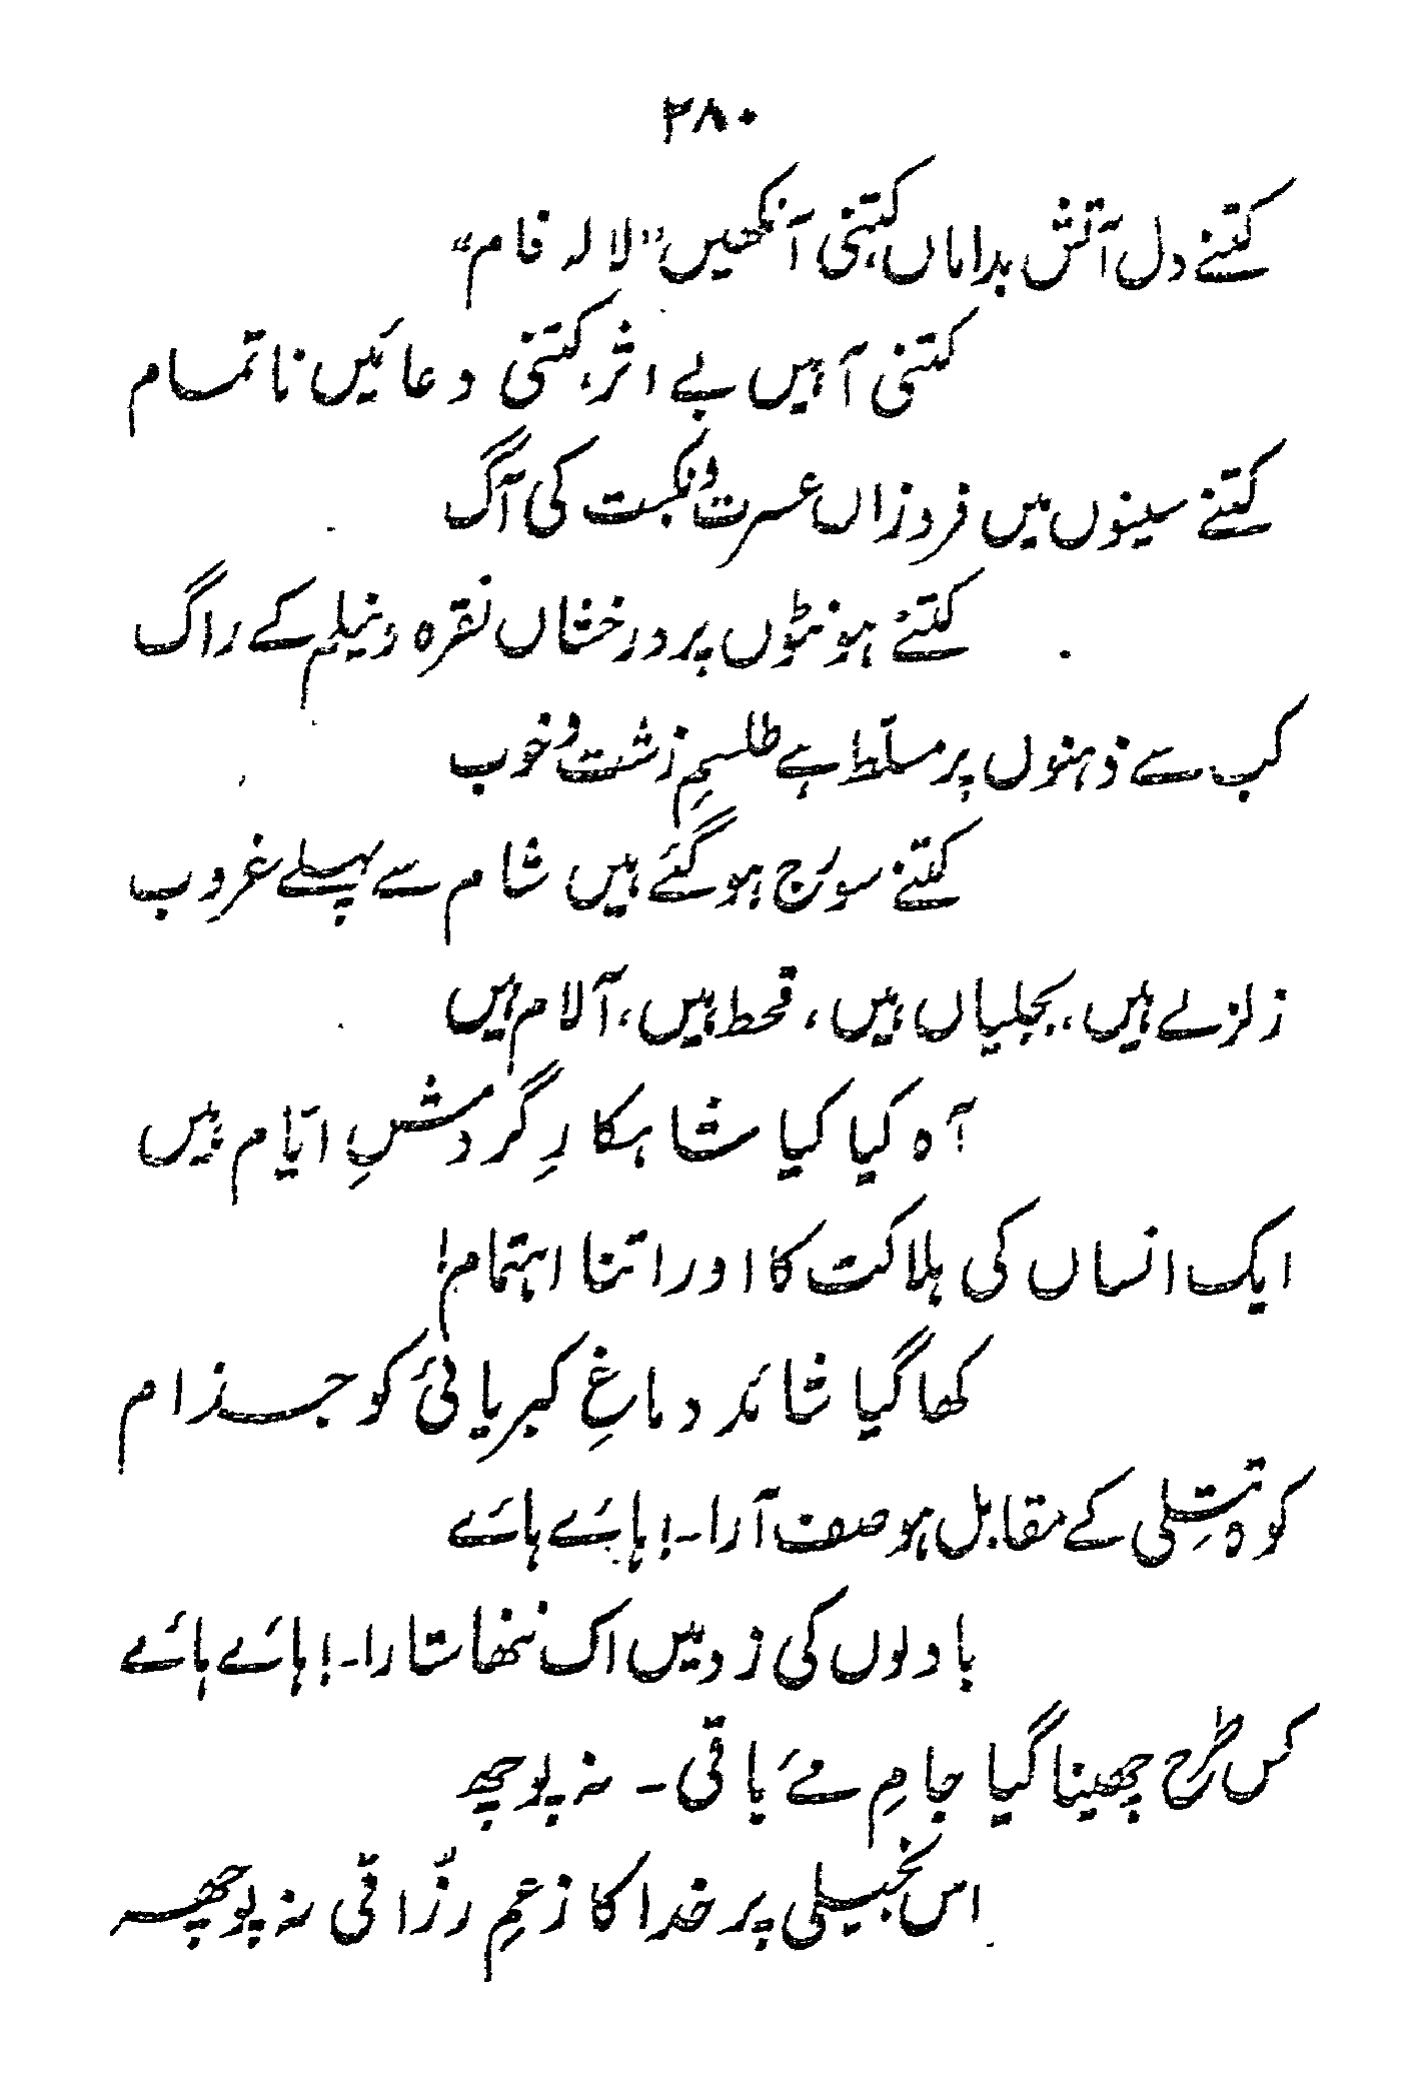 ۲۸۰
کتنے دل آتش بداماں، کتنی آنکھیں "لالہ فام"
کتنی آہیں بے اثر، کتنی دعائیں ناتمام
کتنے سینوں میں فروزاں عسرت و نکبت کی آگ
کتنے ہونٹوں پر درخشاں نقرہ و نیلم کے راگ
کب سے ذہنوں پر مسلّط ہے طلسمِ زشت و خوب
کتنے سورج ہو گئے ہیں شام سے پہلے غروب
زلزلے ہیں، بجلیاں ہیں، قحط ہیں، آلام ہیں
آہ کیا کیا شاہکارِ گردشِ ایّام ہیں
ایک انساں کی ہلاکت کا اور اتنا اہتمام!
کھا گیا شائد دماغِ کبریائی کو جذام
کوہ تشِلی کے مقابل ہو صف آرا۔! ہائے ہائے
بادلوں کی زد میں اک ننھا ستارا۔! ہائے ہائے
کس طرح چھینا گیا جامِ مئے باقی۔ نہ پوچھ
اس بخیلی پر خدا کا زعمِ رزّاقی نہ پوچھ